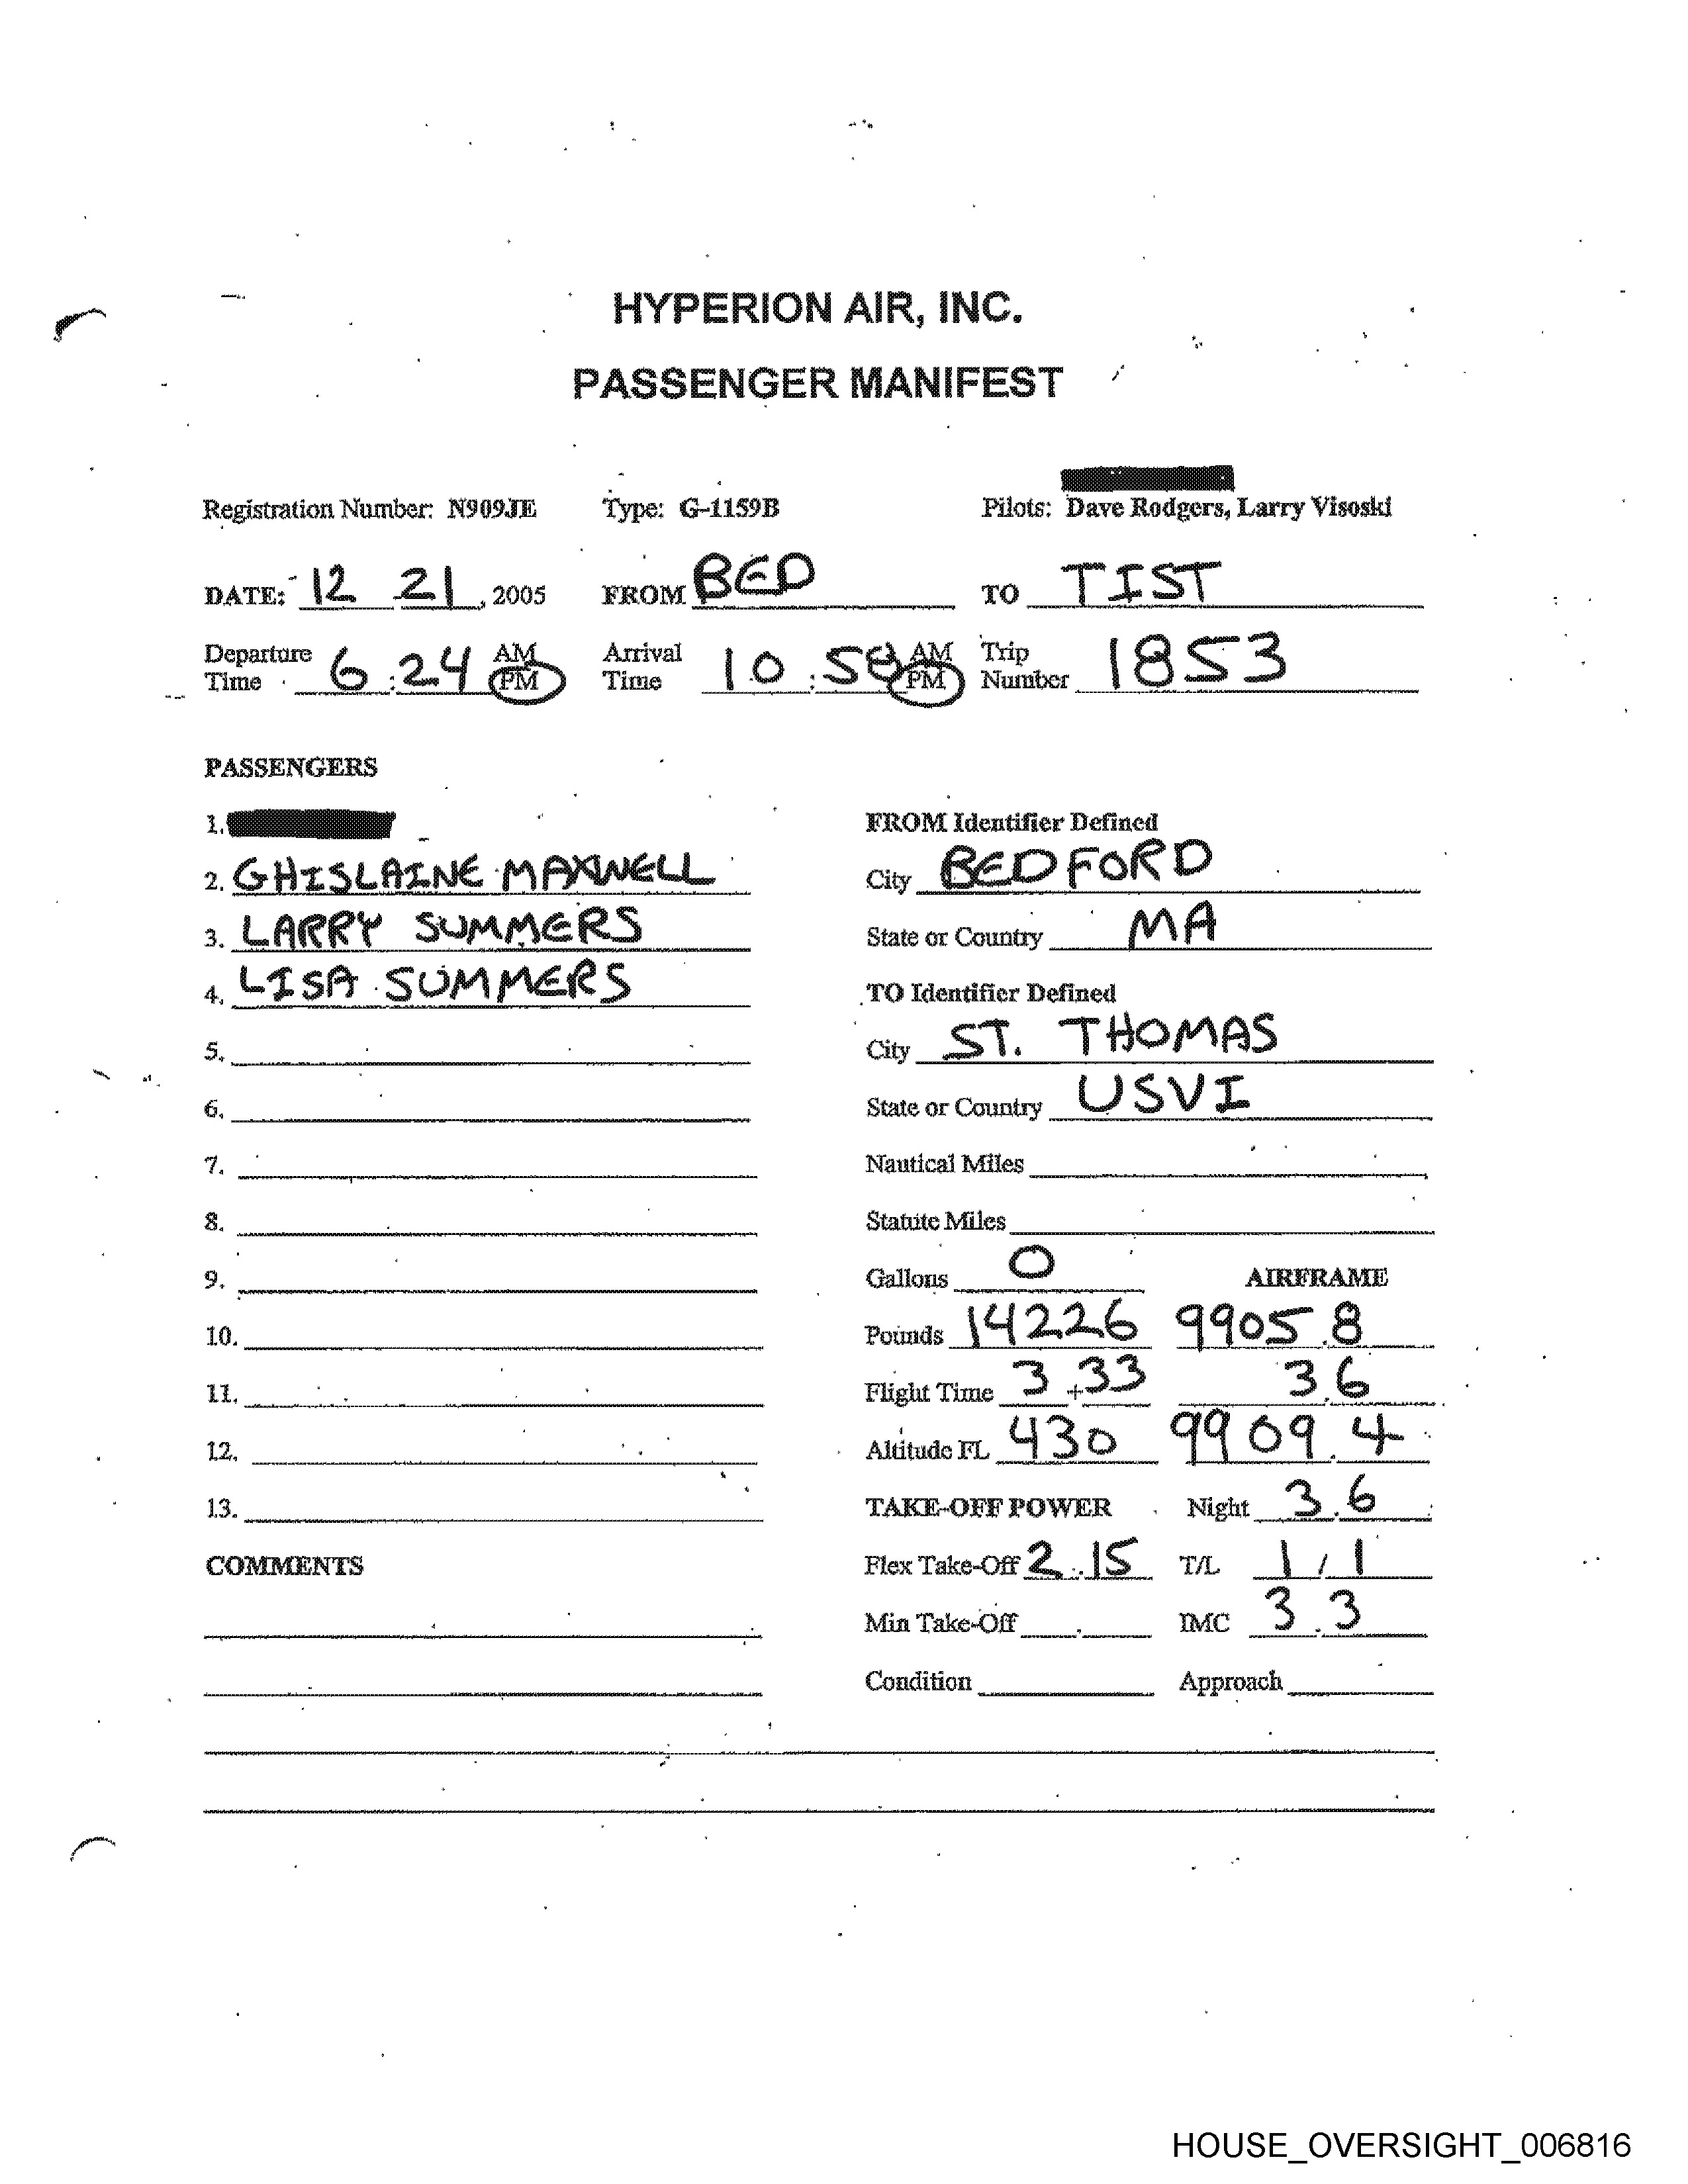 HYPERION AIR, INC.
PASSENGER MANIFEST
Registration Number: N909JE Type: G-1159B Pilots: Dave Rodgers, Larry Visoski
DATE: 12 21, 2005 FROM BED TO TIST
Departure Time 6:24 AM PM Arrival Time 10:58 AM PM Trip Number 1853
PASSENGERS
1.
FROM Identifier Defined
2. GHISLAINE MAXWELL City BEDFORD
3. LARRY SUMMERS State or Country MA
4. LISA SUMMERS TO Identifier Defined
5. City ST. THOMAS
6. State or Country USVI
7. Nautical Miles
8. Statute Miles
9. Gallons 0 AIRFRAME
10. Pounds 14226 9905.8
11. Flight Time 3+33 3.6
12. Altitude FL 430 9909.4
13. TAKE-OFF POWER Night 3.6
COMMENTS Flex Take-Off 2.15 T/L 1/1
Min Take-Off . IMC 3.3
Condition Approach
HOUSE_OVERSIGHT_006816